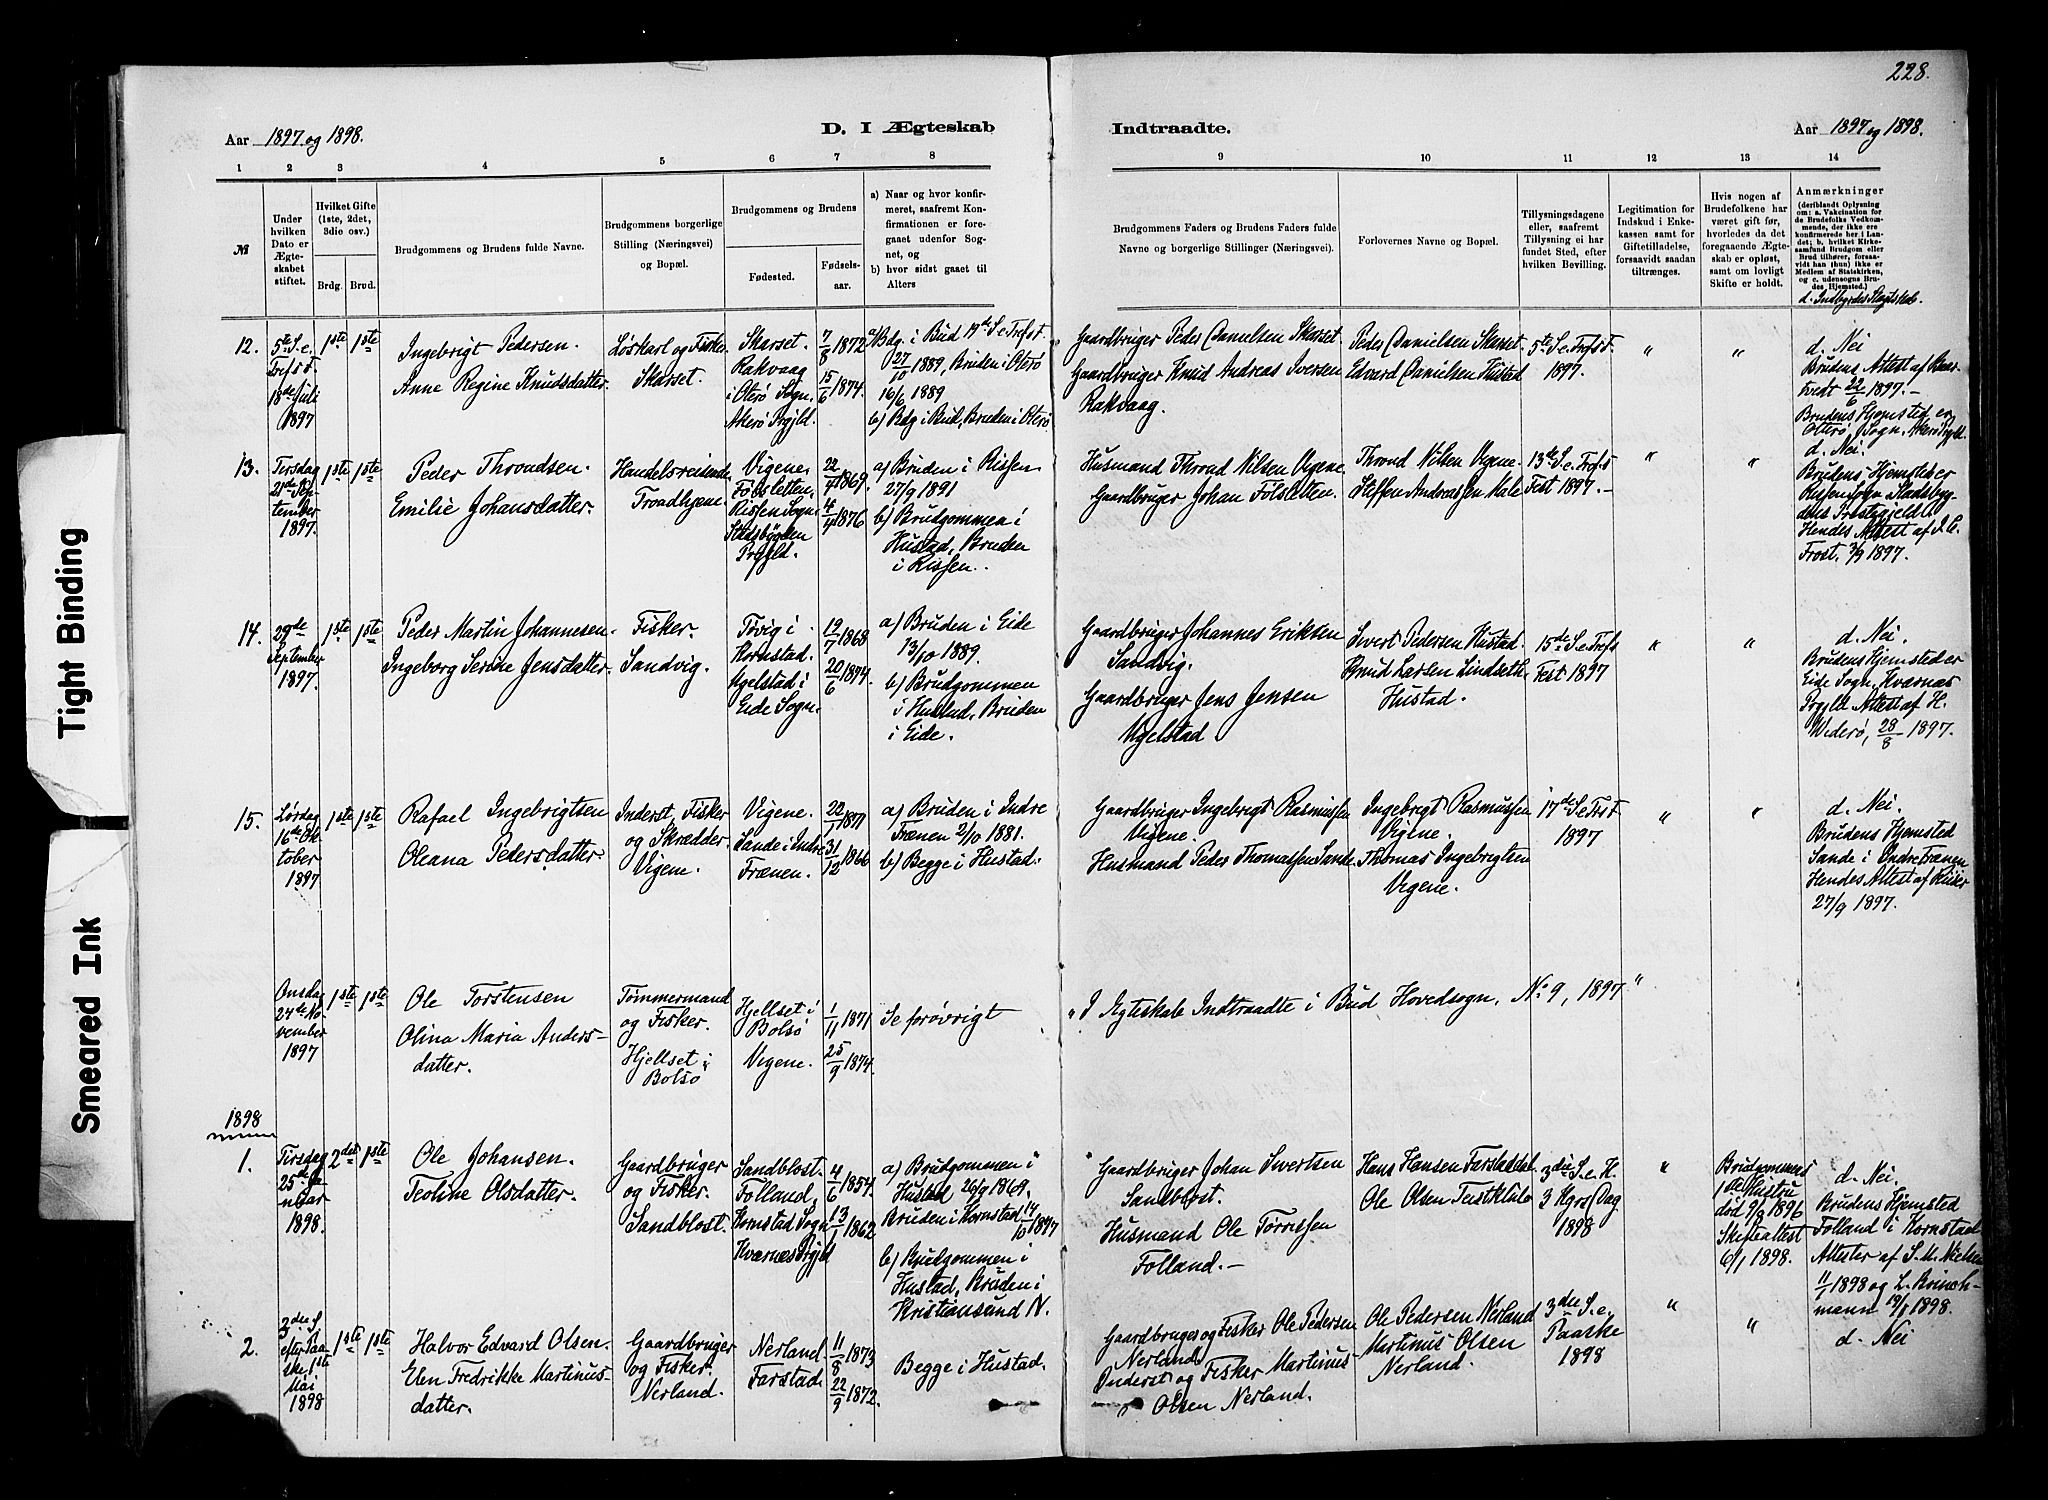 228.
Aar 1897 og 1898.
D. I Ægteskab
Indtraadte.
Aar 1897 og 1898.
1 2 3 4 5 6 7 8
9 10 11 12 13 14
№
Under hvilken Dato er Ægteskabet stiftet.
Hvilket Gifte (1ste, 2det, 3die osv.)
Brdg. Brud.
Brudgommens og Brudens fulde Navne.
Brudgommens borgerlige Stilling (Næringsvei) og Bopæl.
Brudgommens og Brudens
Fødested.
Fødselsaar.
a) Naar og hvor konfirmeret, saafremt Konfirmationen er foregaaet udenfor Sognet, og
b) hvor sidst gaaet til Alters
Brudgommens Faders og Brudens Faders fulde Navne og borgerlige Stillinger (Næringsvei).
Forlovernes Navne og Bopæl.
Tillysningsdagene eller, saafremt Tillysning ei har fundet Sted, efter hvilken Bevilling.
Legitimation for Indskud i Enkekassen samt for Giftetilladelse, forsaavidt saadan tiltrænges.
Hvis nogen af Brudefolkene har været gift før, hvorledes da det foregaaende Ægteskab er opløst, samt om lovligt Skifte er holdt.
Anmærkninger
(deriblandt Oplysning om: a. Vakcination for de Brudefolks Vedkommende, der ikke ere konfirmerede her i Landet; b. hvilket Kirkesamfund Brudgom eller Brud tilhører, forsaavidt han (hun) ikke er Medlem af Statskirken, og c. udensogns Brudes Hjemsted.)
d. Indbyrdes Slægtskab.
12.
5te S. e. Trefst.
18de Juli
1897
1ste 1ste
Ingebrigt Pedersen.
Anne Regine Knudsdatter.
Løskarl og Fisker
Skarset.
Skarset.
Rakvaag
i Oterø Sogn,
Akerø Prgjld.
7/8 1872
15/6 1874.
a) Bdg. i Bud 19de S. e. Trefst.
27/10 1889, Bruden i Oterø
16/6 1889
b) Bdg i Bud, Bruden i Oterø
Gaardbruger Peder Danielsen Skarset
Gaardbruger Knud Andreas Iversen
Rakvaag.
Peder Danielsen Skarset
Edvard Danielsen Hustad
5te S. e. Trefst.
1897.
"
"
d. Nei
Brudens Attest af
22/6 1897.
Brudens Hjemsted er
Otterø Sogn, Akerø Prgjld.
13.
Tirsdag
21de September
1897.
1ste 1ste
Peder Throndsen.
Emilie Johansdatter.
Handelsreisende
Trondhjem.
Vigene.
Følsletten,
Rissen Sogn.
Stadsbygden
Prgjld.
22/4 1869.
4/4 1876
a) Bruden i Rissen
27/9 1891
b) Brudgommen i
Hustad, Bruden
i Rissen.
Husmand Thrond Nilsen Vigene
Gaardbruger Johan Følsletten.
Thrond Nilsen Vigene.
Steffen Andreassen Male
13de S. e. Trefs
Fest 1897.
"
"
d. Nei.
Brudens Hjemsted er
Rissen Sogn, Stadsbygdens Prestegjeld.
Hendes Attest af J. C.
Frost, 3/9 1897.
14.
29de
September
1897.
1ste 1ste
Peder Martin Johannesen.
Ingeborg Serine Jensdatter.
Fisker.
Sandvig.
Tøvig i
Kornstad.
Ugelstad i
Eide Sogn.
19/7 1868
20/6 1874.
a) Bruden i Eide
13/10 1889.
b) Brudgommen
i Hustad, Bruden
i Eide.
Gaardbruger Johannes Eriksen
Sandvig.
Gaardbruger Jens Jensen
Ugelstad.
Sivert Pedersen Hustad
Knud Larsen Lindseth
Hustad.
15de S. e. Trefs
Fest 1897
"
"
d. Nei.
Brudens Hjemsted er
Eide Sogn, Kværnæs
Prgjld. Attest af H.
Wederø, 28/8 1897.
15.
Lørdag
16de Oktober
1897
1ste 1ste
Rafael Ingebrigtsen
Oleana Pedersdatter
Inderst, Fisker
og Skrædder
Vigene.
Vigene.
Sande i Indre
Frænen.
22/1 1871
31/12 1866
a) Bruden i Indre
Frænen 2/10 1881.
b) Begge i Hustad.
Gaardbruger Ingebrigt Rasmussen
Vigene.
Husmand Peder Thomassen Sande.
Ingebrigt Rasmussen
Vigene.
Thomas Ingebrigtsen
Vigene.
17de S. e. Trfst
1897
"
"
d. Nei.
Brudens Hjemsted
Sande i Indre Frænen
Hendes Attest af
27/9 1897.
Onsdag
24de November
1897
1ste 1ste
Ole Torstensen
Olina Maria Andersdatter.
Tømmermand
og Fisker.
Hjellset i
Bolsø
Hjellset i
Bolsø
Vigene.
1/11 1871
25/9 1874.
Se forøvrigt
" I Ægteskab Indtraadte i Bud Hovedsogn, No 9, 1897 "
1898
1.
Tirsdag
25de Januar
1898.
2det 1ste
Ole Johansen.
Teoline Olsdatter.
Gaardbruger
og Fisker.
Sandblost.
Sandblost.
Folland,
Kornstad Sogn
Kværnæs Prgjld
4/6 1854.
13/1 1862
a) Brudgommen i
Hustad 26/9 1869.
Bruden i Kornstad 14/10 1877
b) Brudgommen i
Hustad, Bruden i
Kristiansund N.
Gaardbruger Johan Sivertsen
Sandblost.
Husmand Ole Torrissen
Folland.
Hans Hansen Farstad
Ole Olsen
3die S. e. H.
3 Kgrs Dag
1898
"
Brudgommens
1ste Hustru
død 9/8 1896
Skifteattest
6/1 1898.
d. Nei.
Brudens Hjemsted
Folland i Kornstad
Attester af S. M. Nielsen
11/1 1898 og L. Brinchmann 19/1 1898.
2.
3die S.
efter Paaske 1ste
Mai
1898
1ste 1ste
Halvor Edvard Olsen.
Elen Fredrikke Martinusdatter.
Gaardbruger
og Fisker.
Nerland.
Nerland.
Farstad
11/8 1873
22/9 1872.
Begge i Hustad.
Gaardbruger og Fisker Ole Pedersen
Nerland.
Inderst og Fisker Martinus
Olsen Nerland.
Ole Pedersen Nerland
Martinus Olsen
Nerland.
3die S. e.
Paaske
1898
"
"
d. Nei
Tight Binding
Smeared Ink